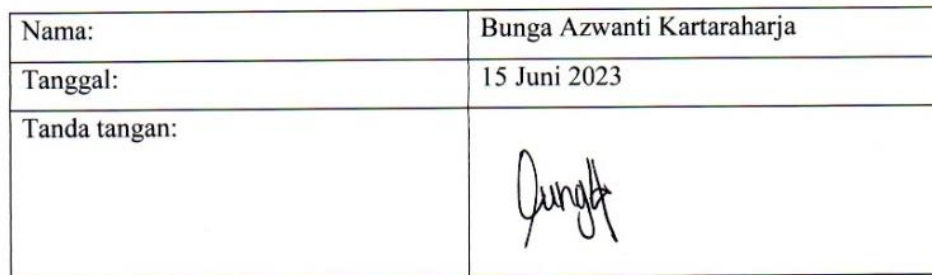 Nama: Bunga Azwanti Kartaraharja
Tanggal: 15 Juni 2023
Tanda tangan: